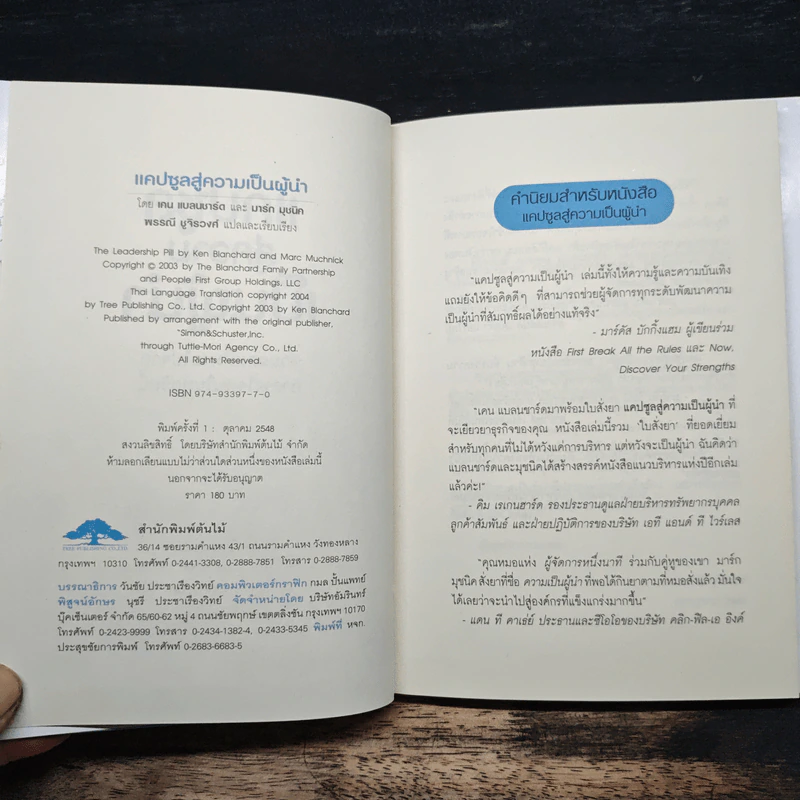 แคปซูลสู่ความเป็นผู้นำ
โดย เคน แบลนชาร์ด และ มาร์ก มุชนิค
พรรณี ชูจิรวงศ์ แปลและเรียบเรียง
The Leadership Pill by Ken Blanchard and Marc Muchnick
Copyright © 2003 by The Blanchard Family Partnership
and People First Group Holdings, LLC
Thai Language Translation copyright 2004
by Tree Publishing Co., Ltd. Copyright 2003 by Ken Blanchard
Published by arrangement with the original publisher,
"Simon&Schuster,Inc.
through Tuttle-Mori Agency Co., Ltd.
All Rights Reserved.
ISBN 974-93397-7-0
พิมพ์ครั้งที่ 1 : ตุลาคม 2548
สงวนลิขสิทธิ์ โดยบริษัทสำนักพิมพ์ต้นไม้ จำกัด
ห้ามลอกเลียนแบบไม่ว่าส่วนใดส่วนหนึ่งของหนังสือเล่มนี้
นอกจากจะได้รับอนุญาต
ราคา 180 บาท
TREE PUBLISHING CO.,LTD.
สำนักพิมพ์ต้นไม้
36/14 ซอยรามคำแหง 43/1 ถนนรามคำแหง วังทองหลาง
กรุงเทพฯ 10310 โทรศัพท์ 0-2441-3308, 0-2888-7851 โทรสาร 0-2888-7859
บรรณาธิการ วันชัย ประชาเรืองวิทย์ คอมพิวเตอร์กราฟิก กมล ปั้นแพทย์
พิสูจน์อักษร นุชรี ประชาเรืองวิทย์ จัดจำหน่ายโดย บริษัทอัมรินทร์
บุ๊คเซ็นเตอร์ จำกัด 65/60-62 หมู่ 4 ถนนชัยพฤกษ์ เขตตลิ่งชัน กรุงเทพฯ 10170
โทรศัพท์ 0-2423-9999 โทรสาร 0-2434-1382-4, 0-2433-5345 พิมพ์ที่ หจก.
ประสุขชัยการพิมพ์ โทรศัพท์ 0-2683-6683-5
คำนิยมสำหรับหนังสือ
แคปซูลสู่ความเป็นผู้นำ
"แคปซูลสู่ความเป็นผู้นำ เล่มนี้ทั้งให้ความรู้และความบันเทิง
แถมยังให้ข้อคิดดีๆ ที่สามารถช่วยผู้จัดการทุกระดับพัฒนาความ
เป็นผู้นำที่สัมฤทธิ์ผลได้อย่างแท้จริง"
- มาร์คัส บักกิ้งแฮม ผู้เขียนร่วม
หนังสือ First Break All the Rules และ Now,
Discover Your Strengths
"เคน แบลนชาร์ดมาพร้อมใบสั่งยา แคปซูลสู่ความเป็นผู้นำ ที่
จะเยียวยาธุรกิจของคุณ หนังสือเล่มนี้รวม 'ใบสั่งยา' ที่ยอดเยี่ยม
สำหรับทุกคนที่ไม่ได้หวังแค่การบริหาร แต่หวังจะเป็นผู้นำ ฉันคิดว่า
แบลนชาร์ดและมุชนิคได้สร้างสรรค์หนังสือแนวบริหารแห่งปีอีกเล่ม
แล้วค่ะ!"
- คิม เรเกนฮาร์ด รองประธานดูแลฝ่ายบริหารทรัพยากรบุคคล
ลูกค้าสัมพันธ์ และฝ่ายปฏิบัติการของบริษัท เอที แอนด์ ที ไวร์เลส
"คุณหมอแห่ง ผู้จัดการหนึ่งนาที ร่วมกับคู่หูของเขา มาร์ก
มุชนิค สั่งยาที่ชื่อ ความเป็นผู้นำ ที่พอได้กินยาตามที่หมอสั่งแล้ว มั่นใจ
ได้เลยว่าจะนำไปสู่องค์กรที่แข็งแกร่งมากขึ้น"
- แดน ที คาเธย์ ประธานและซีโอโอของบริษัท คลิก-ฟิล-เอ อิงค์